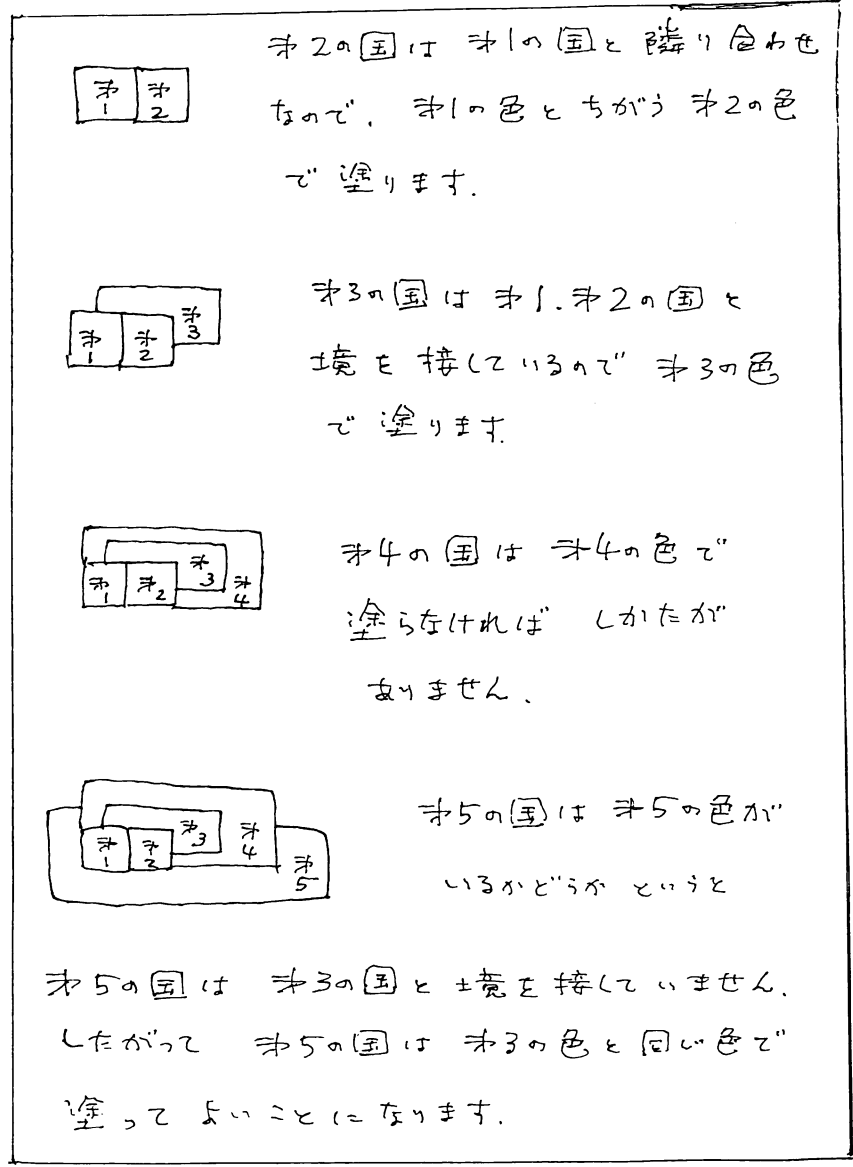 第1 第2
第2の国は 第1の国と 隣り合わせ
なので、第1の色と ちがう 第2の色
で 塗ります.
第1 第2 第3
第3の国は 第1.第2の国と
境を 接しているので 第3の色
で 塗ります.
第1 第2 第3 第4
第4の国は 第4の色で
塗らなければ しかたが
ありません.
第1 第2 第3 第4 第5
第5の国は 第5の色が
いるかどうか というと
第5の国は 第3の国と 境を 接して いません.
したがって 第5の国は 第3の色と 同じ色で
塗って よいことに なります.